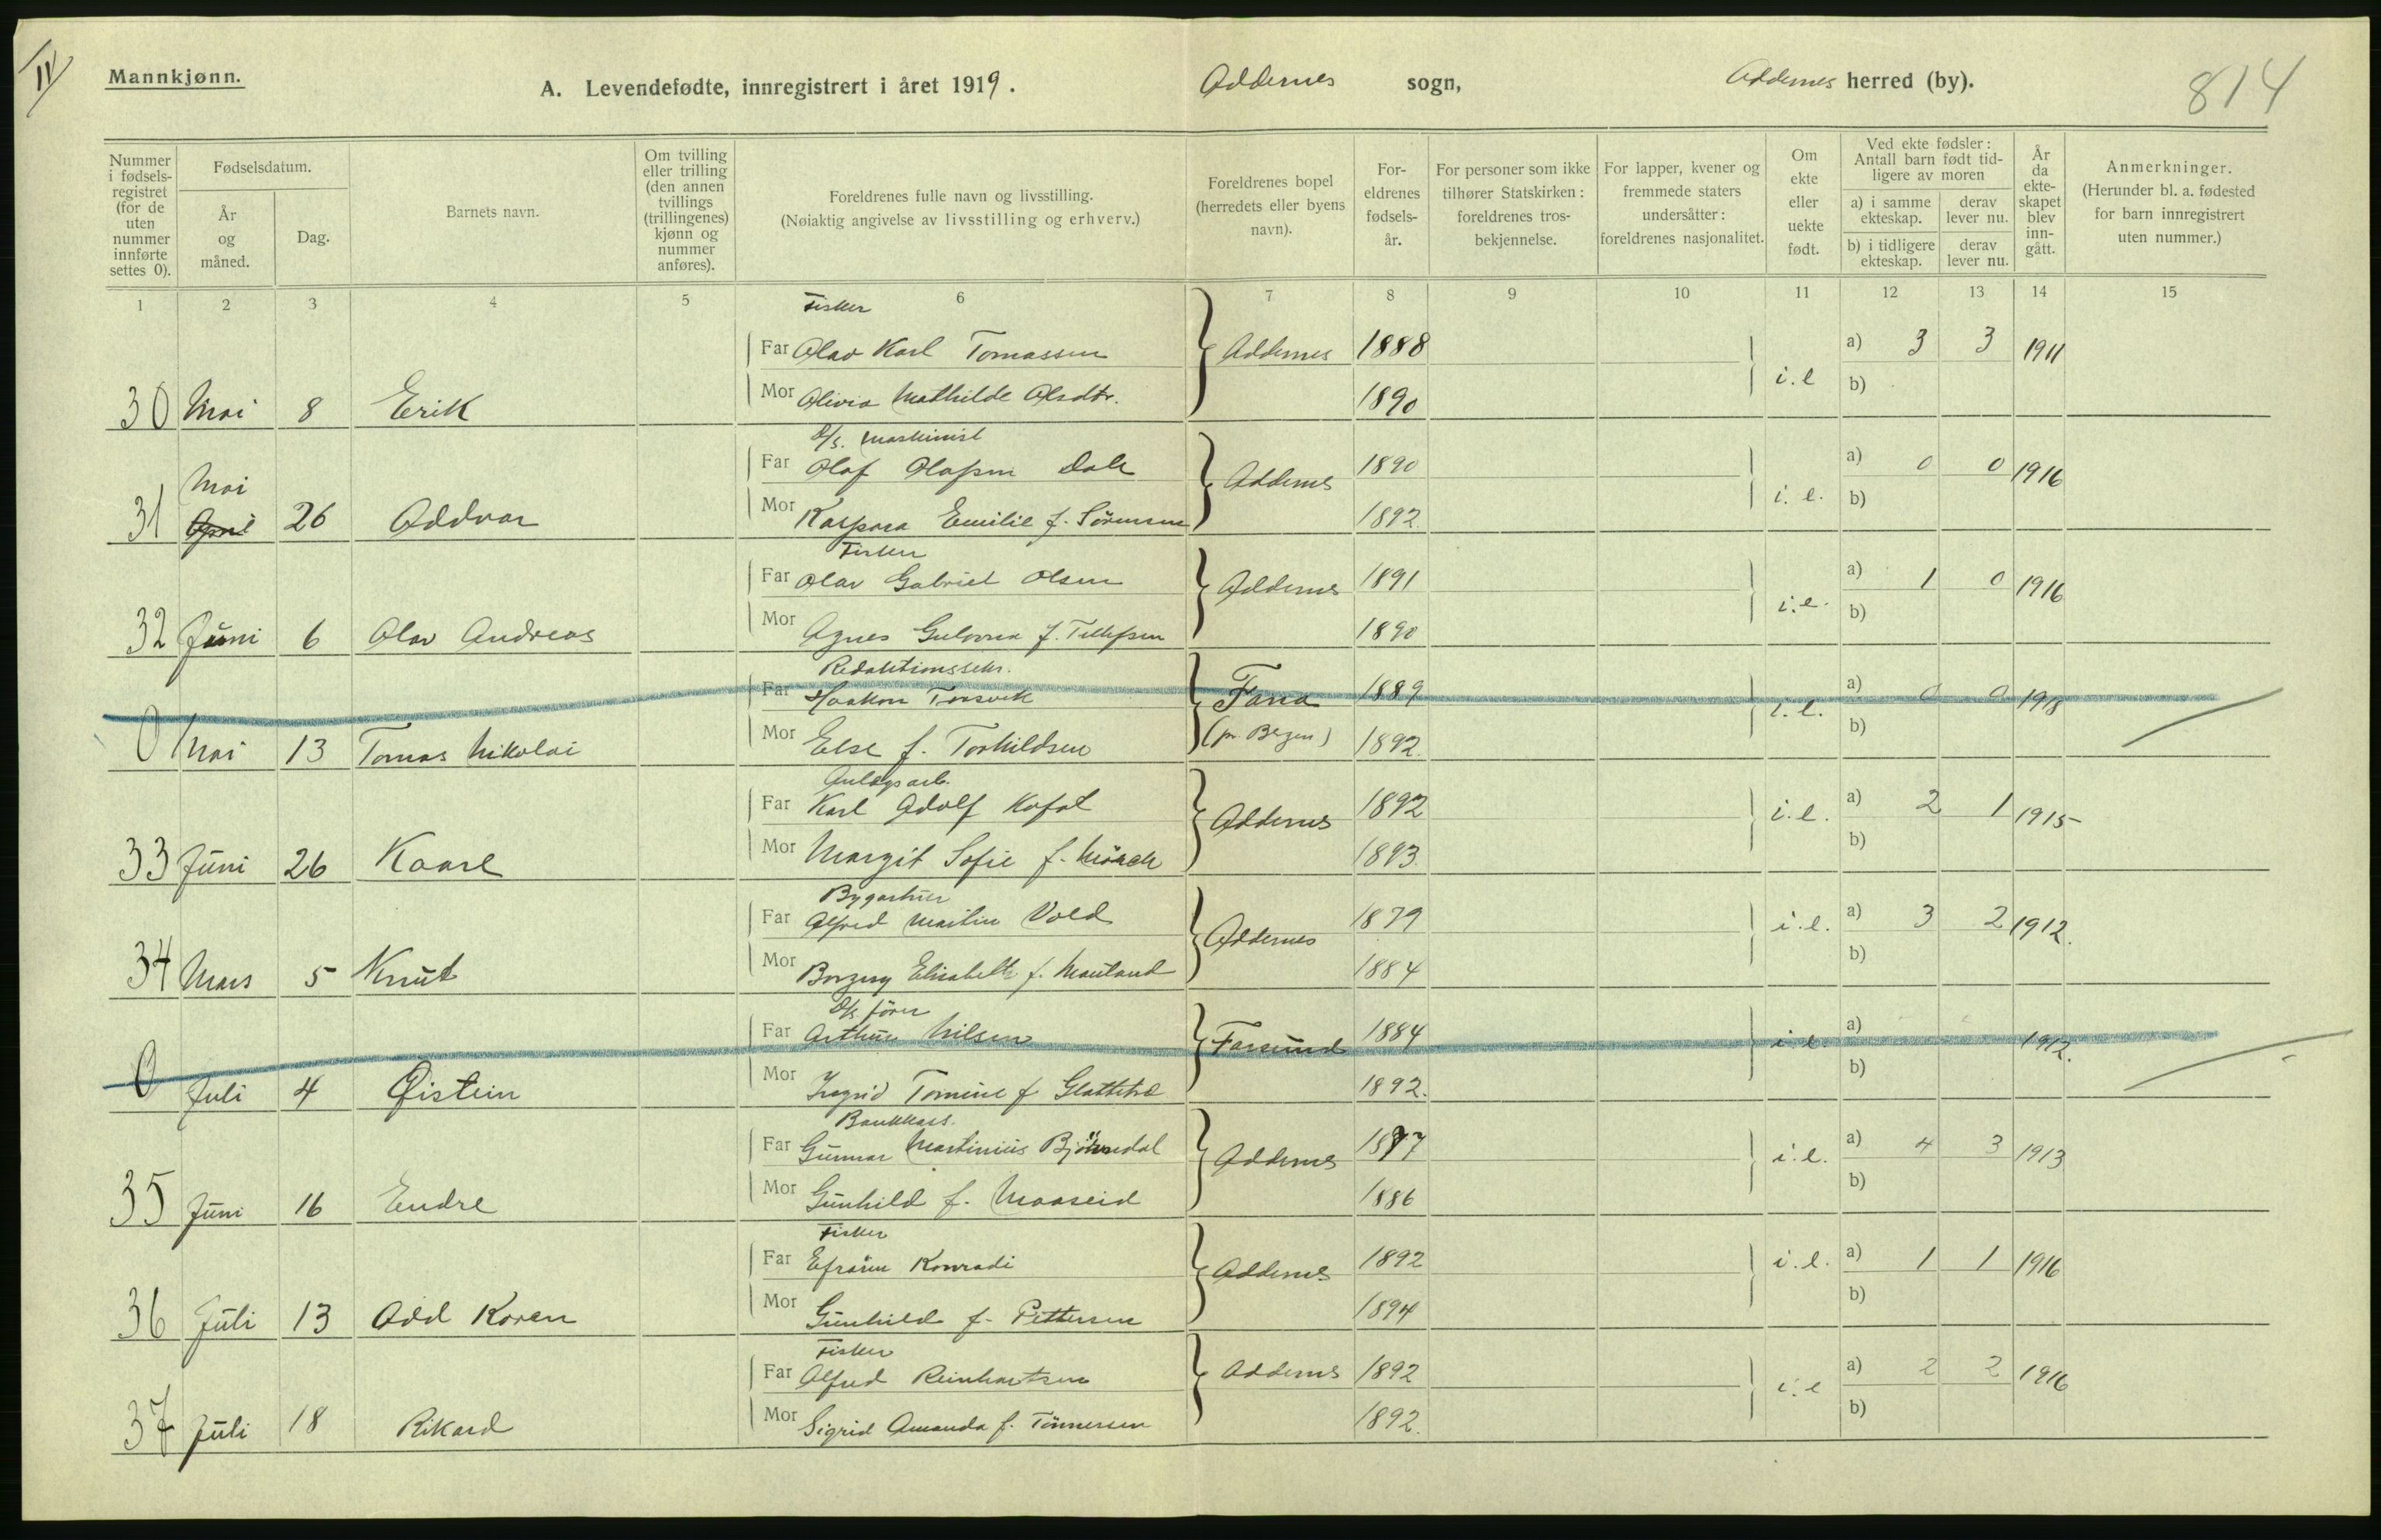 IV
Mannkjønn.
A. Levendefødte, innregistrert i året 1919.
Oddernes sogn,
Oddernes herred (by).
814
Nummer i fødsels-registret (for de uten nummer innførte settes 0).
Fødselsdatum.
År og måned.
Dag.
Barnets navn.
Om tvilling eller trilling (den annen tvillings (trillingenes) kjønn og nummer anføres).
Foreldrenes fulle navn og livsstilling.
(Nøiaktig angivelse av livsstilling og erhverv.)
Foreldrenes bopel (herredets eller byens navn).
For-eldrenes fødsels-år.
For personer som ikke tilhører Statskirken: foreldrenes tros-bekjennelse.
For lapper, kvener og fremmede staters undersåtter: foreldrenes nasjonalitet.
Om ekte eller uekte født.
Ved ekte fødsler: Antall barn født tid-ligere av moren
a) i samme ekteskap.
derav lever nu.
b) i tidligere ekteskap.
derav lever nu.
År da ekte-skapet blev inn-gått.
Anmerkninger.
(Herunder bl. a. fødested for barn innregistrert uten nummer.)
1 2 3 4 5 6 7 8 9 10 11 12 13 14 15
Fisker
Far Olav Karl Tomassen Oddernes 1888 a) 3 3 1911
30 Mai 8 Erik Mor Olivia Mathilde Olsdtr. 1890 i.e b)
D/s. maskinist
Far Olaf Olafsen Dale Oddernes 1890 a) 0 0 1916
Mai
31 April 26 Oddvar Mor Kaspara Emilie f. Sörensen 1892. i. e. b)
Fisker
Far Olav Gabriel Olsen Oddernes 1891 a) 1 0 1916
32 Juni 6 Olav Andreas Mor Agnes f. Tellefsen 1890 i.e. b)
Redaktionssekr.
Far Haakon Torsvik Fana 1889 i.e. a) 0 0 1918
0 Mai 13 Tomas Nikolai Mor Else f. Torkildsen (pr. Bergen) 1892. b)
Anlægsarb.
Far Karl Adolf Kofot Oddernes 1892 i.e. a) 2 1 1915
33 Juni 26 Kaare Mor Margit Sofie f. 1893. b)
Bygartner
Far Alfred Martin Vold Oddernes 1879 i.e. a) 3 2 1912.
34 Mars 5 Knut Mor Borgny Elisabeth f. Mauland 1884 b)
D/s fører
Far Arthur Nilsen Farsund 1884 i.e. a) 1912.
0 Juli 4 Øistein Mor Ingrid Tomine f Glattetre 1892. b)
Bankkass.
Far Gunnar Martinius Björnedal Oddernes 1887 i.e. a) 4 3 1913
35 Juni 16 Endre Mor Gunhild f. Maaseid 1886 b)
Fisker
Far Efraim Konradi Oddernes 1892 i.e. a) 1 1 1916
36 Juli 13 Odd Koren Mor Gunhild f. Pettersen 1894 b)
Fisker
Far Alfred Reinhartsen Oddernes 1892 a) 2 2 1916
37 Juli 18 Rikard Mor Sigrid Amanda f. Tönnessen 1892. i.e b)